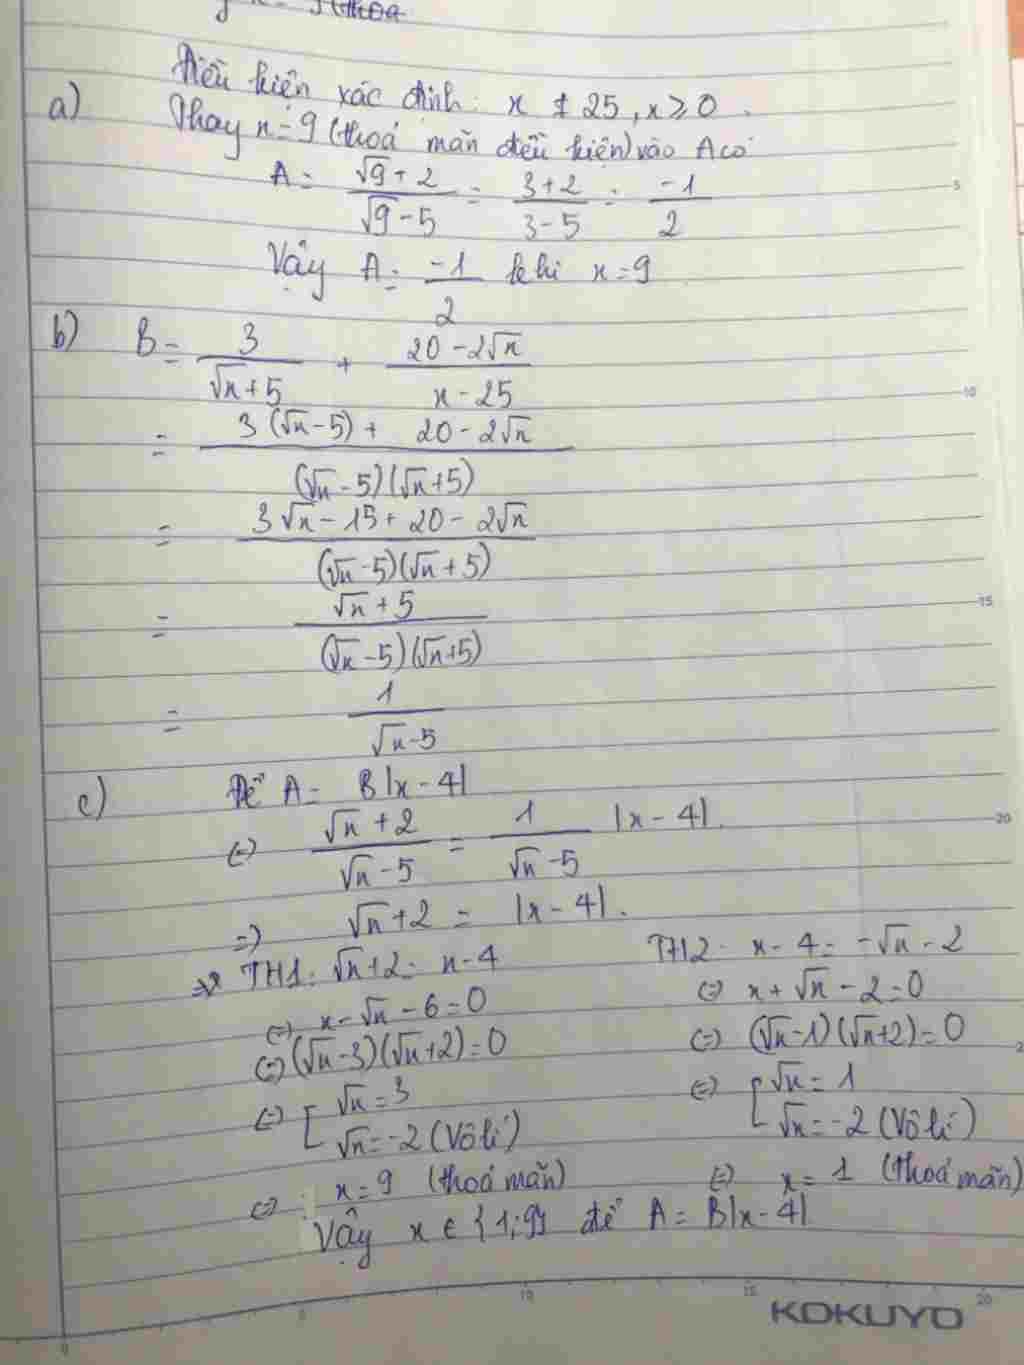 Điều kiện xác định: x ≠ 25, x ≥ 0.
a) Thay x = 9 (thoả mãn điều kiện) vào A có
A = \frac{\sqrt{9}+2}{\sqrt{9}-5} = \frac{3+2}{3-5} = \frac{-1}{2}
Vậy A = \frac{-1}{2} khi x = 9
b) B = \frac{3}{\sqrt{x}+5} + \frac{20-2\sqrt{x}}{x-25}
= \frac{3(\sqrt{x}-5) + 20-2\sqrt{x}}{(\sqrt{x}-5)(\sqrt{x}+5)}
= \frac{3\sqrt{x}-15+20-2\sqrt{x}}{(\sqrt{x}-5)(\sqrt{x}+5)}
= \frac{\sqrt{x}+5}{(\sqrt{x}-5)(\sqrt{x}+5)}
= \frac{1}{\sqrt{x}-5}
c) Để A = B|x-4|
(=) \frac{\sqrt{x}+2}{\sqrt{x}-5} = \frac{1}{\sqrt{x}-5} |x-4|.
=) \sqrt{x}+2 = |x-4|.
TH1: \sqrt{x}+2 = x-4
(=) x-\sqrt{x}-6=0
(=) (\sqrt{x}-3)(\sqrt{x}+2)=0
(=) [ \sqrt{x}=3
\sqrt{x}=-2 (Vô lí)
(=) x=9 (thoả mãn)
TH2: x-4 = -\sqrt{x}-2
(=) x+\sqrt{x}-2=0
(=) (\sqrt{x}-1)(\sqrt{x}+2)=0
(=) [ \sqrt{x}=1
\sqrt{x}=-2 (Vô lí)
(=) x=1 (thoả mãn)
Vậy x ∈ {1;9} để A = B|x-4|
KOKUYO